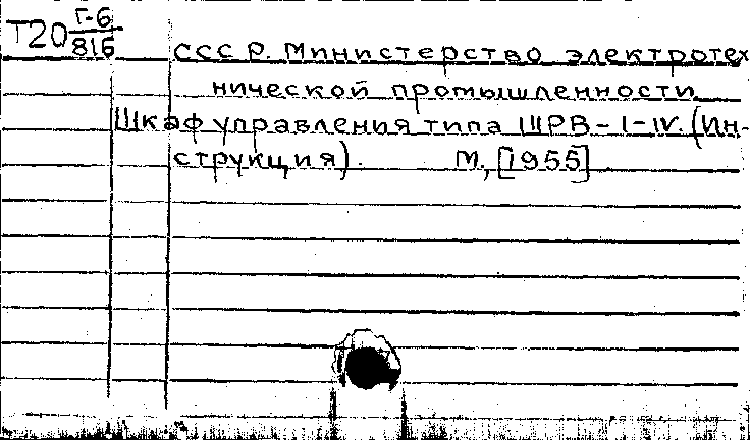 Т20 Г-6
816
СССР. Министерство электротех
нической промышленности
Шкаф управления типа ШРВ-I-IV. (Ин-
струкция). М., [1955]